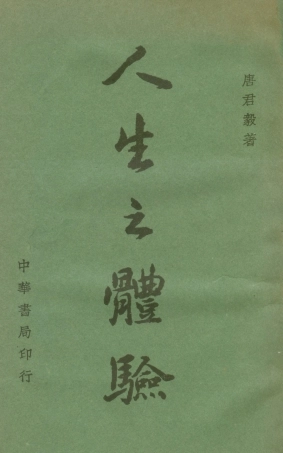 唐君毅著
人生之體驗
中華書局印行